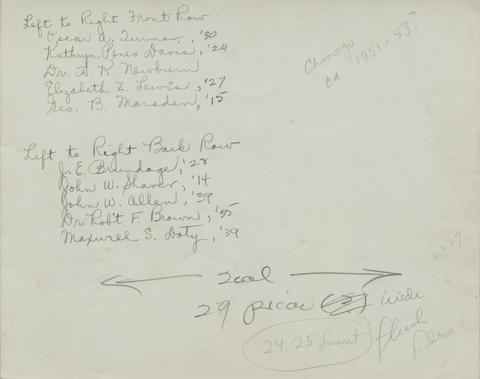 Left to Right Front Row:
Oscar A. Turner, '30
Kathryn Peneo Davis, '24
Dr. H. K. Newburn
Elizabeth Z. Lewis, '27
Geo. B. Marsden, '15
Chicago
ca 1951-53?
Left to Right Back Row
J. E. Brundage, '28
John W. Shaver, '14
John W. Allen, '39
Dr. Rob't F Brown, '35
Maxwell S. Doty, '39
2 col
29 picas wide
24.25 Scant flush